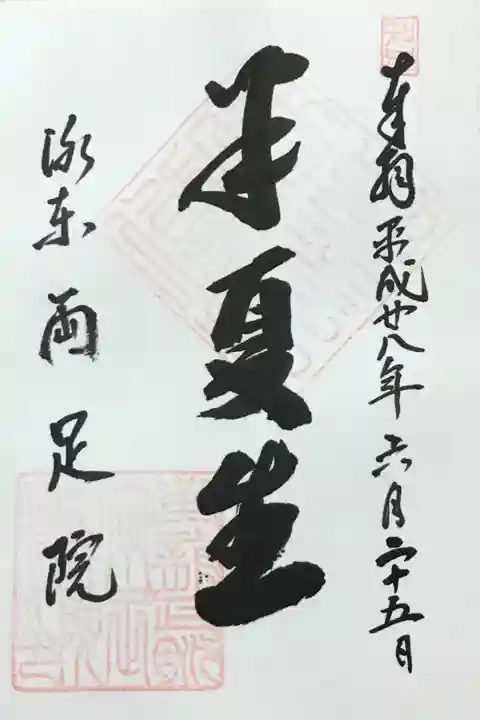 奉拝 平成廿八年六月二十五日
半夏生
洛東 両足院